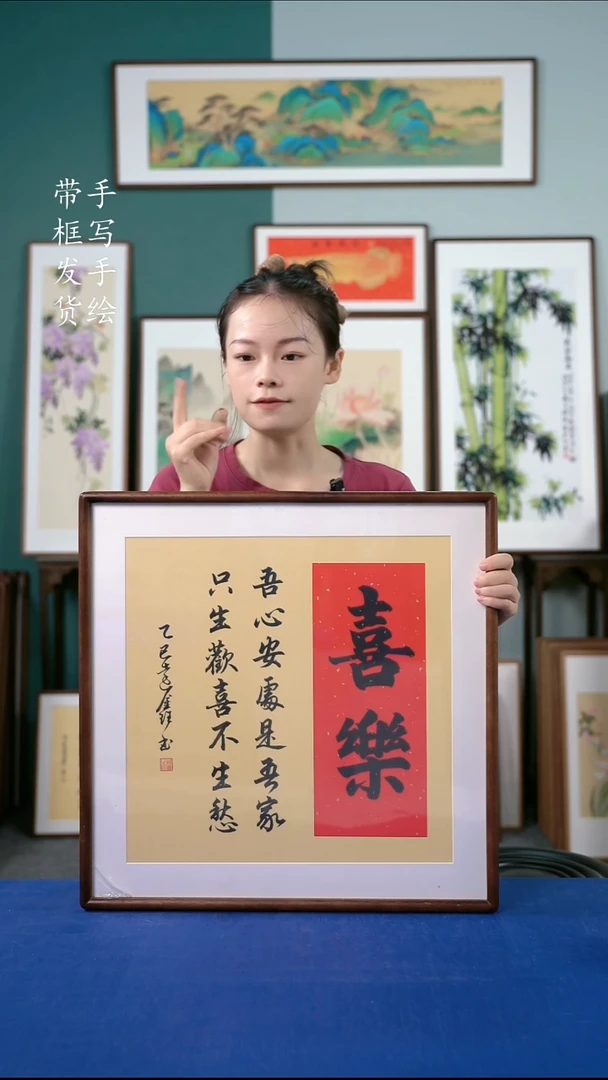 手写手绘
带框发货
喜樂
吾心安處是吾家
只生歡喜不生愁
乙巳
书